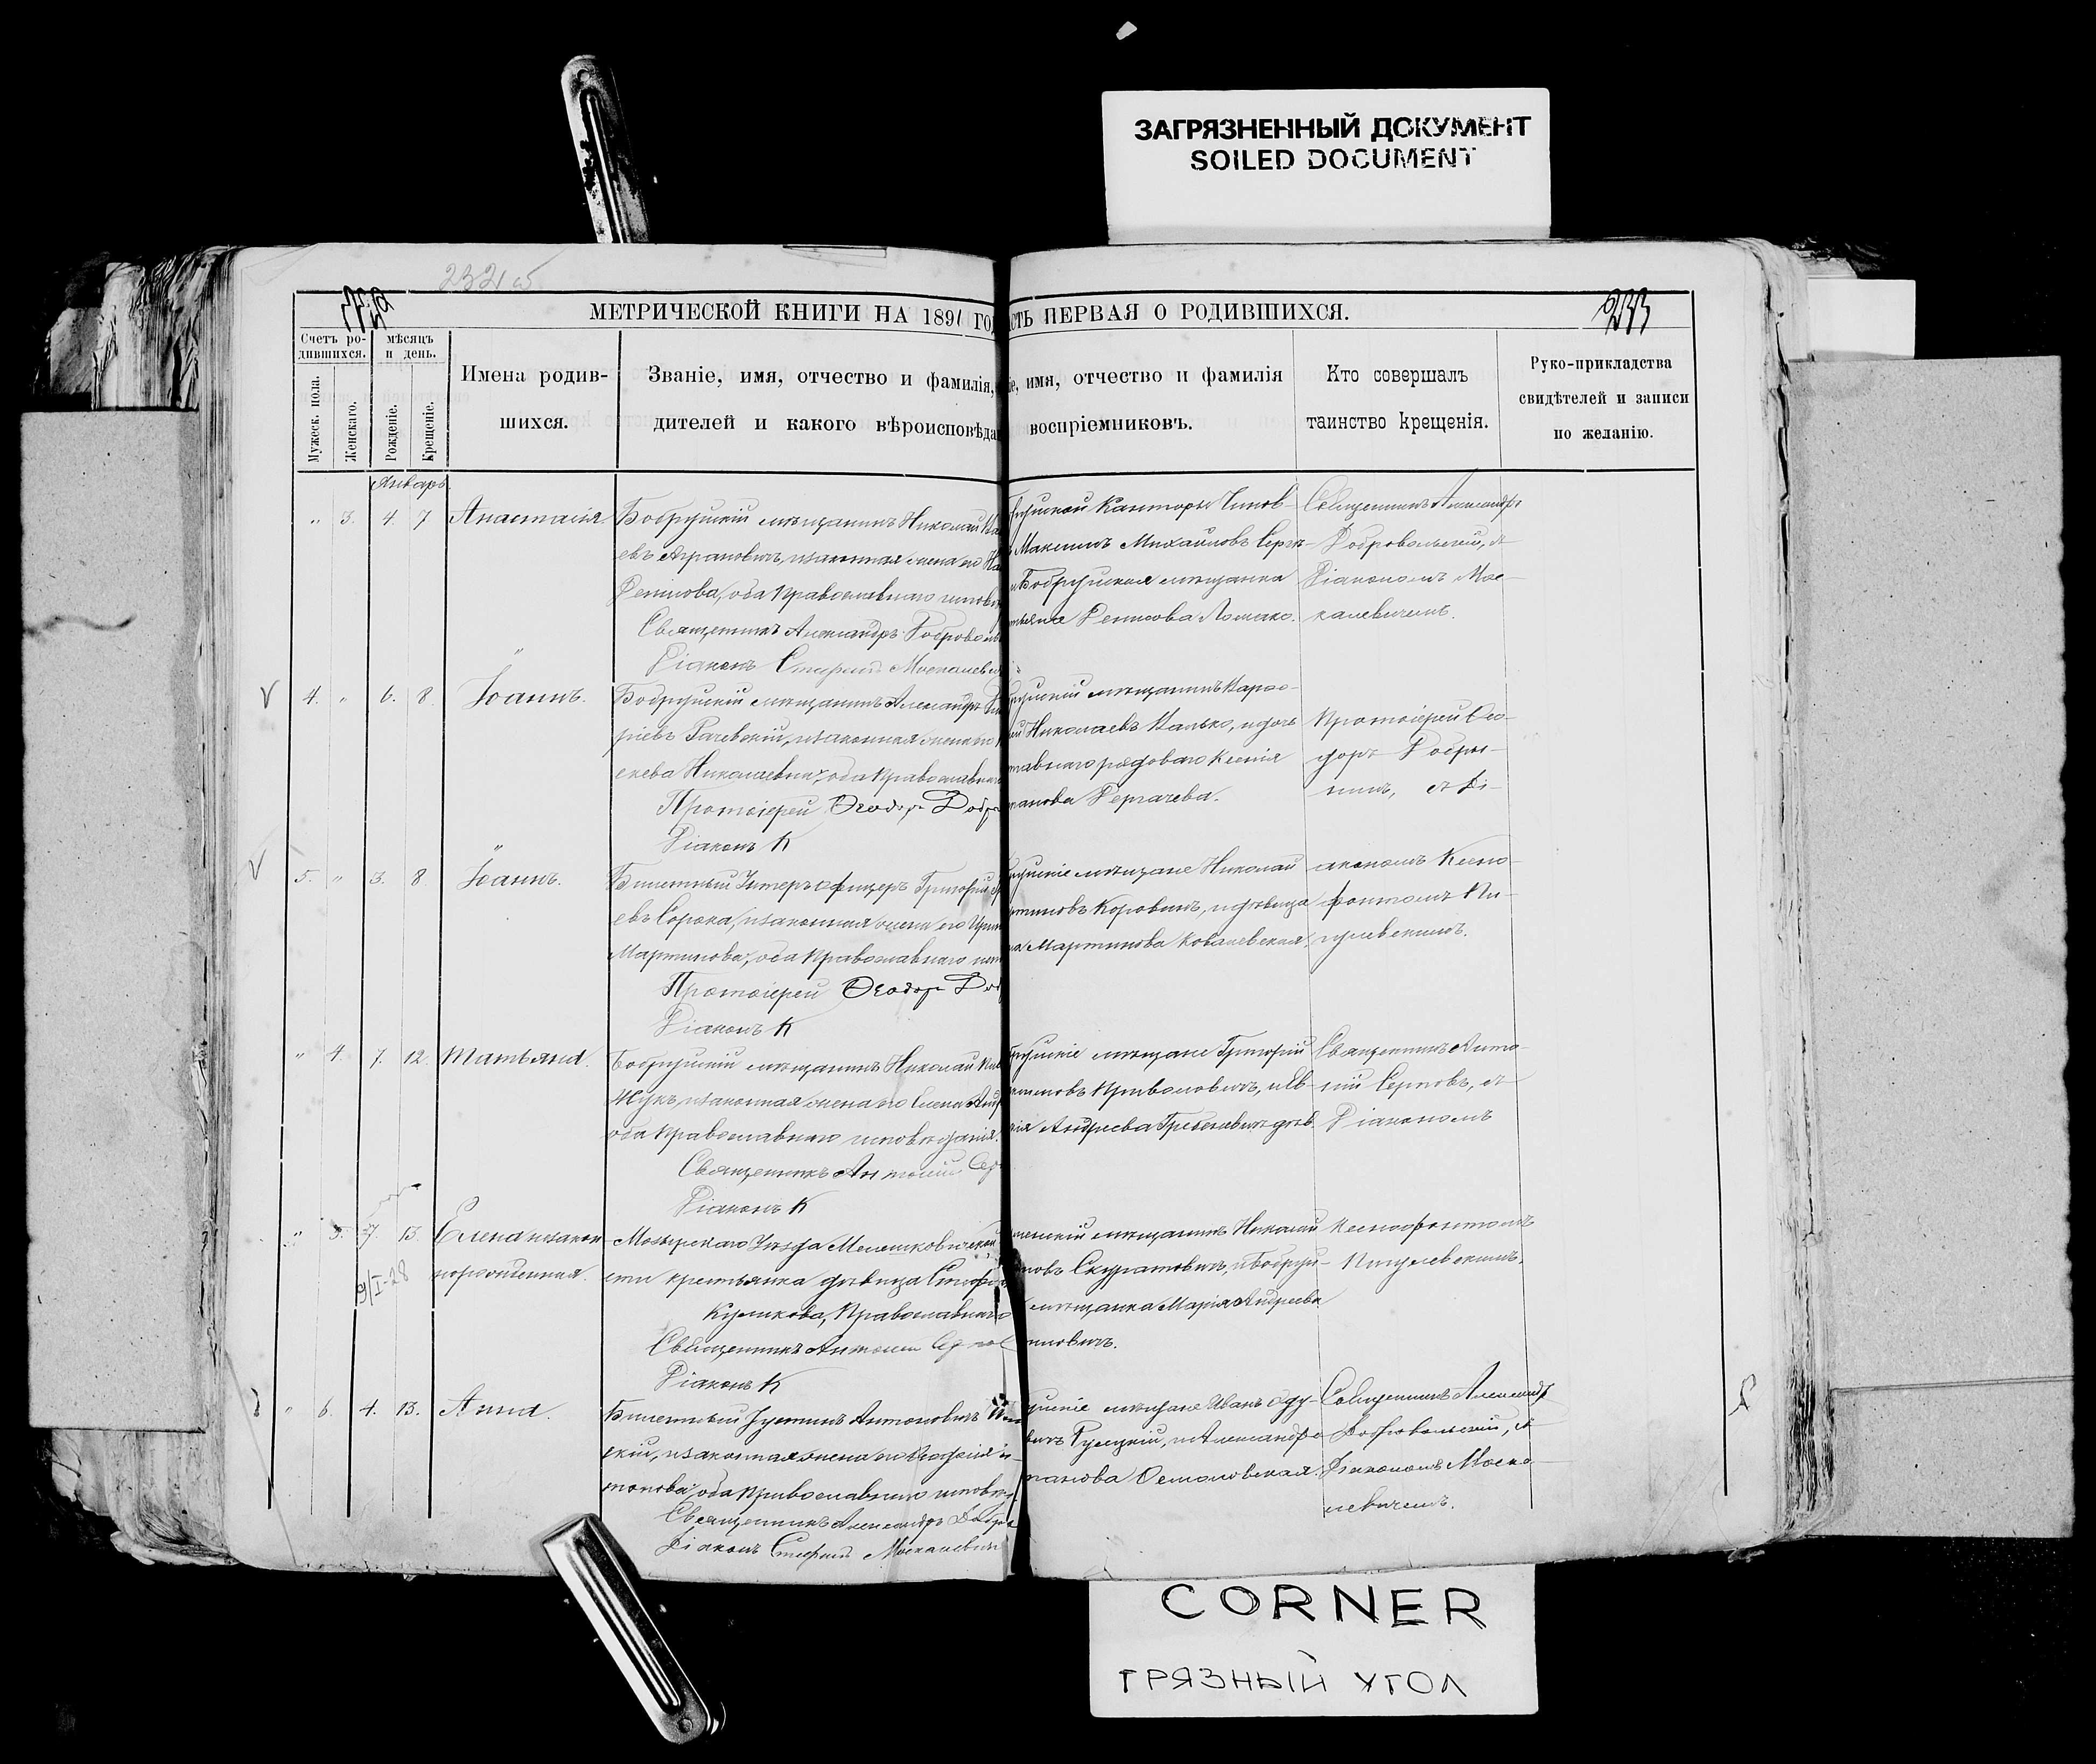 ЗАГРЯЗНЕННЫЙ ДОКУМЕНТ
SOILED DOCUMENT
232 об
МЕТРИЧЕСКОЙ КНИГИ НА 1891 ГОД
СТЬ ПЕРВАЯ О РОДИВШИХСЯ.
233
Счетъ ро-
дившихся.
Мужеск. пола.
Женскаго.
мѣсяцъ
и день.
Рожденіе.
Крещеніе.
Имена родив-
шихся.
Званіе, имя, отчество и фамилія,
дителей и какого вѣроисповѣда
іе, имя, отчество и фамилія
воспріемниковъ.
Кто совершалъ
таинство крещенія.
Руко-прикладства
свидѣтелей и записи
по желанію.
Январь.
" 3. 4. 7 Анастасія
Бобруйскій мѣщанинъ Николай
евъ, и законная жена его
Денисова, оба Православнаго испов
Священникъ Александръ Доброволь
Діаконъ Стефанъ Москалеви
Конторы Чинов-
Максимъ Михайловъ Серг
Бобруйская мѣщанка
Денисова Ломако.
Священникъ Александръ
Добровольскій, съ
Діакономъ Мос-
калевичемъ.
4. " 6. 8. Іоаннъ.
Бобруйскій мѣщанинъ Александръ
ріевъ Рачевскій, и законная жена его
Николаевна, оба Православна
Протоіерей Ѳеодоръ Добр
Діаконъ К
руйскій мѣщанинъ Варѳо-
ей Николаевъ Валько, и дочь
ставнаго рядоваго Ксенія
Дергачева.
Протоіерей Ѳео-
доръ Добры-
нинъ, съ Ді-
5. " 3. 8. Іоаннъ.
Билетный Унтеръ-офицеръ Григорій
евъ Сорока, и законная жена его Ирин
Мартинова, оба Православнаго исп
Протоіерей Ѳеодоръ Доб
Діаконъ К
руйскіе мѣщане Николай
ртиновъ Коровинъ, и дѣвица
на Мартинова Ковалевская.
акономъ Ксено-
фонтомъ Пи-
гулевскимъ.
" 4. 7. 12. Татьяна.
Бобруйскій мѣщанинъ Николай
Жукъ, и законная жена его Елена Анд
оба Православнаго исповѣданія.
Священникъ Антоній Сер
Діаконъ К
руйскіе мѣщане Григорій
Приволовичъ, и Ев-
нія Андреева Гребеневичъ дѣв.
Священникъ Анто-
ній Серповъ, съ
Діакономъ
" 5. 7. 13. Елена незакон
норожденная.
9/I-28
Мозырскаго Уѣзда Мелешковичской
сти крестьянка дѣвица Стеф
Куликова, Православнаго
Священникъ Антоній Серпов
Діаконъ К
мѣщанинъ Николай
новъ Скуратовичъ, и Бобруй-
мѣщанка Марія Андреева
новичъ.
Ксенофонтомъ
Пигулевскимъ.
" 6. 4. 13. Анна.
Билетный Іустинъ Антоновичъ
скій, и законная жена его
тонова, оба Православнаго исповѣ
Священникъ Александръ Добро
Діаконъ Стефанъ Москалевич
руйскіе мѣщане Иванъ
вичъ Рулецкій, и Александра
Осмоловская.
Священникъ Александръ
Добровольскій, съ
Діакономъ Моска-
левичемъ.
CORNER
ГРЯЗНЫЙ УГОЛ